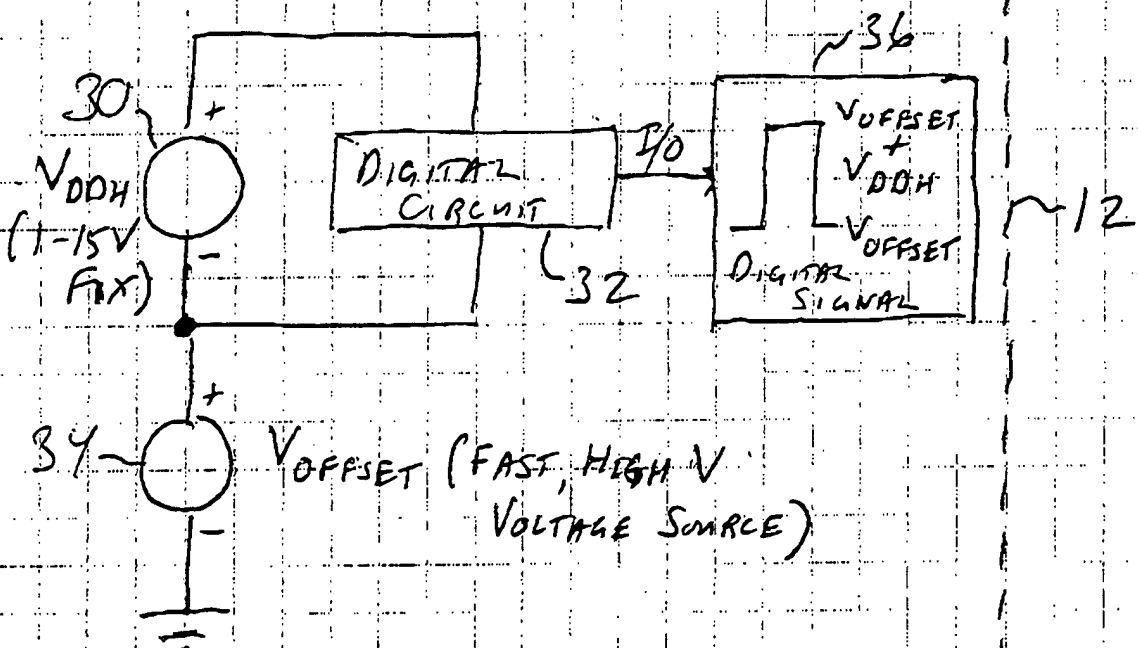 36
30
+
V DDH
(1-15V
FIX)
-
DIGITAL
CIRCUIT
32
I/O
VOFFSET
+
VDDH
VOFFSET
DIGITAL
SIGNAL
12
+
34
VOFFSET (FAST, HIGH V
VOLTAGE SOURCE)
-